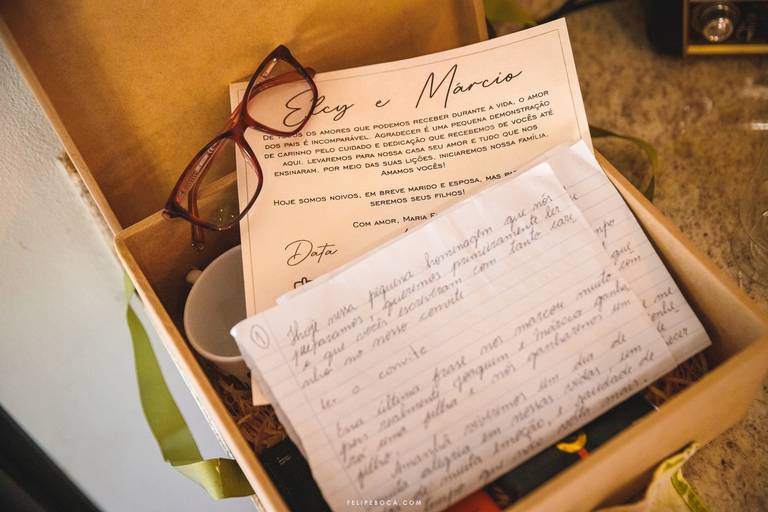 Elcy e Márcio
DE TODOS OS AMORES QUE PODEMOS RECEBER DURANTE A VIDA, O AMOR
DOS PAIS É INCOMPARÁVEL. AGRADECER É UMA PEQUENA DEMONSTRAÇÃO
DE CARINHO PELO CUIDADO E DEDICAÇÃO QUE RECEBEMOS DE VOCÊS ATÉ
AQUI. LEVAREMOS PARA NOSSA CASA SEU AMOR E TUDO QUE NOS
ENSINARAM. POR MEIO DAS SUAS LIÇÕES, INICIAREMOS NOSSA FAMÍLIA.
AMAMOS VOCÊS!
HOJE SOMOS NOIVOS, EM BREVE MARIDO E ESPOSA, MAS
SEREMOS SEUS FILHOS!
COM AMOR, MARIA
Data
1
Hoje nessa pequena homenagem que nós
preparamos, queremos primeiramente ler
o que vocês escreveram com tanto cari
nho no nosso convite
Ler o convite
Essa última frase nos marcou muito
pois realmente Joaquim e Márcia ganha
rá uma filha e nós ganharemos um
filho.
Amanhã viveremos um dia de
alegria em nossas vidas, um
muita emoção, e saudade de
tempo que não volta mais.
FELIPEBOCA.COM